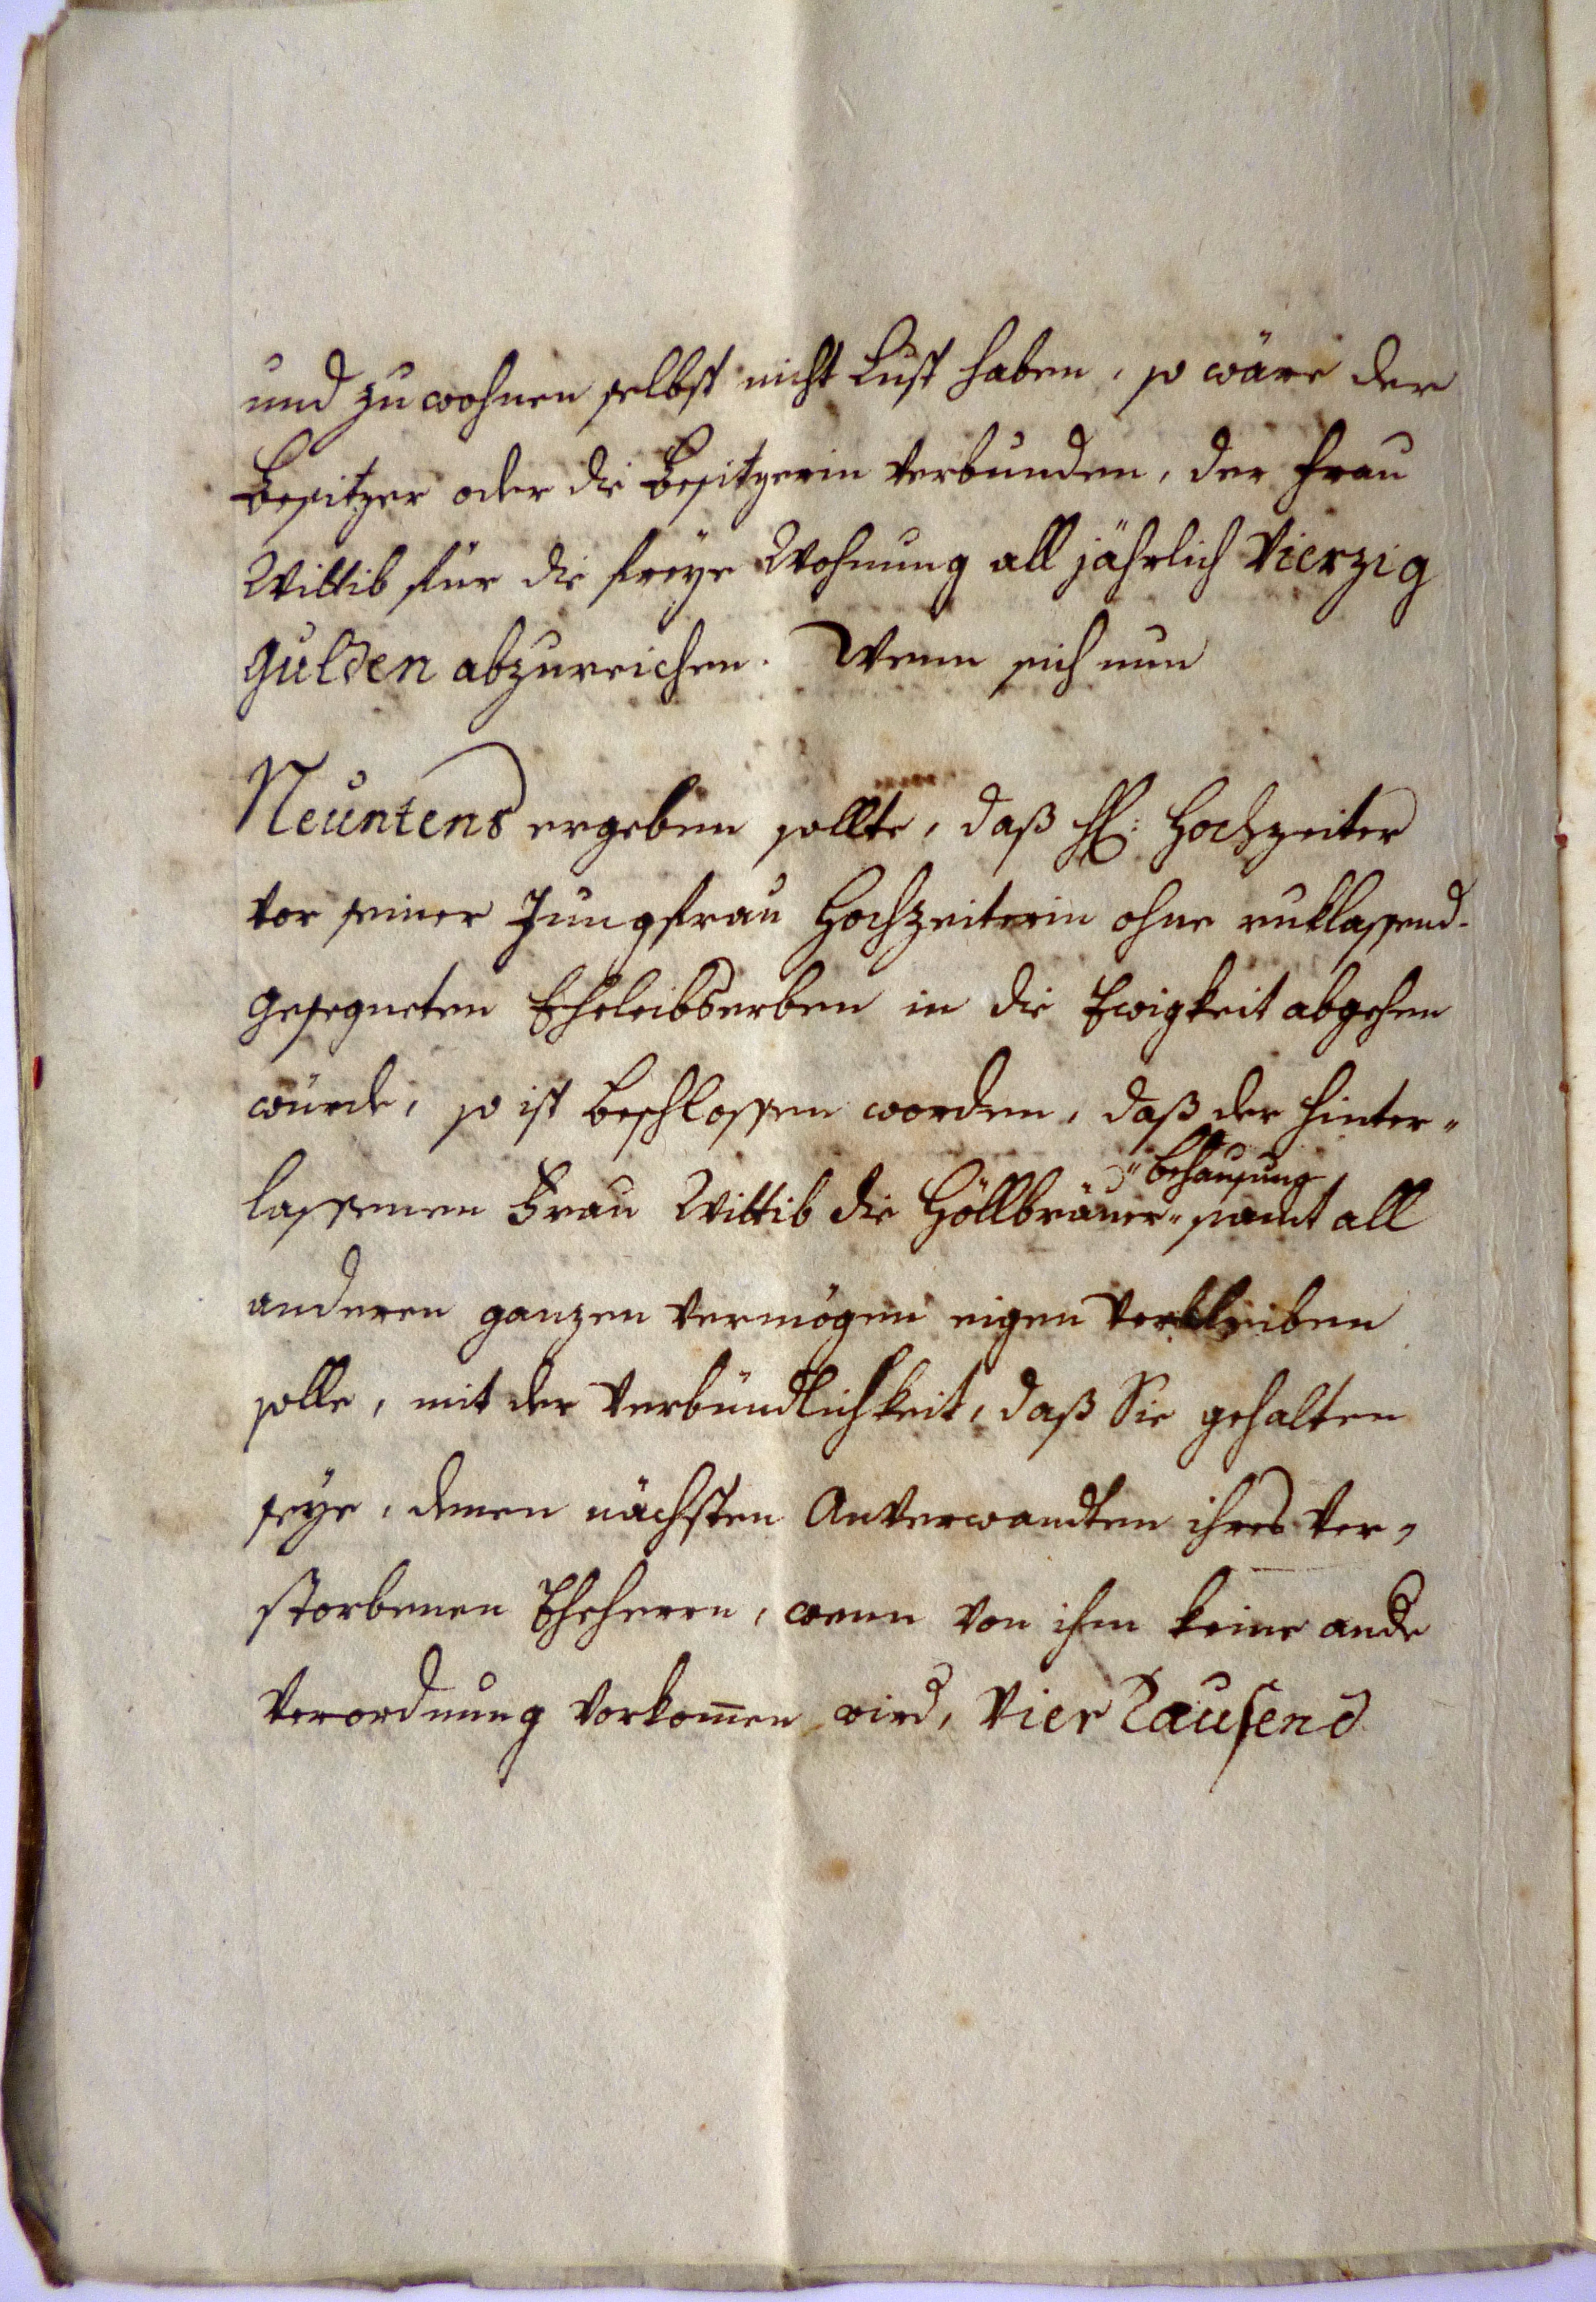 und zu wohnen selbst nicht Lust haben, so wäre der
Besitzer oder die Besitzerin verbunden, der Frau
Wittib für die freye Wohnung all jährlich Vierzig
Gulden abzureichen. Wenn sich nun
Neuntens ergeben sollte, daß H: Hochzeiter
vor seiner Jungfrau Hochzeiterin ohne ruklassend-
gesegneten Eheleibserben in die Ewigkeit abgehen
würde, so ist beschlossen worden, daß der hinter„
"behausung
lassenen Frau Wittib die Höllbräuer„ samt all
anderen ganzen Vermögen eigen verbleiben
solle, mit der Verbündlichkeit, daß Sie gehalten
seye, denen nächsten Anverwandten ihres ver„
storbenen Eheherrn, wenn von ihm keine ande
Verordnung vorkom̅en wird, Vier Tausend